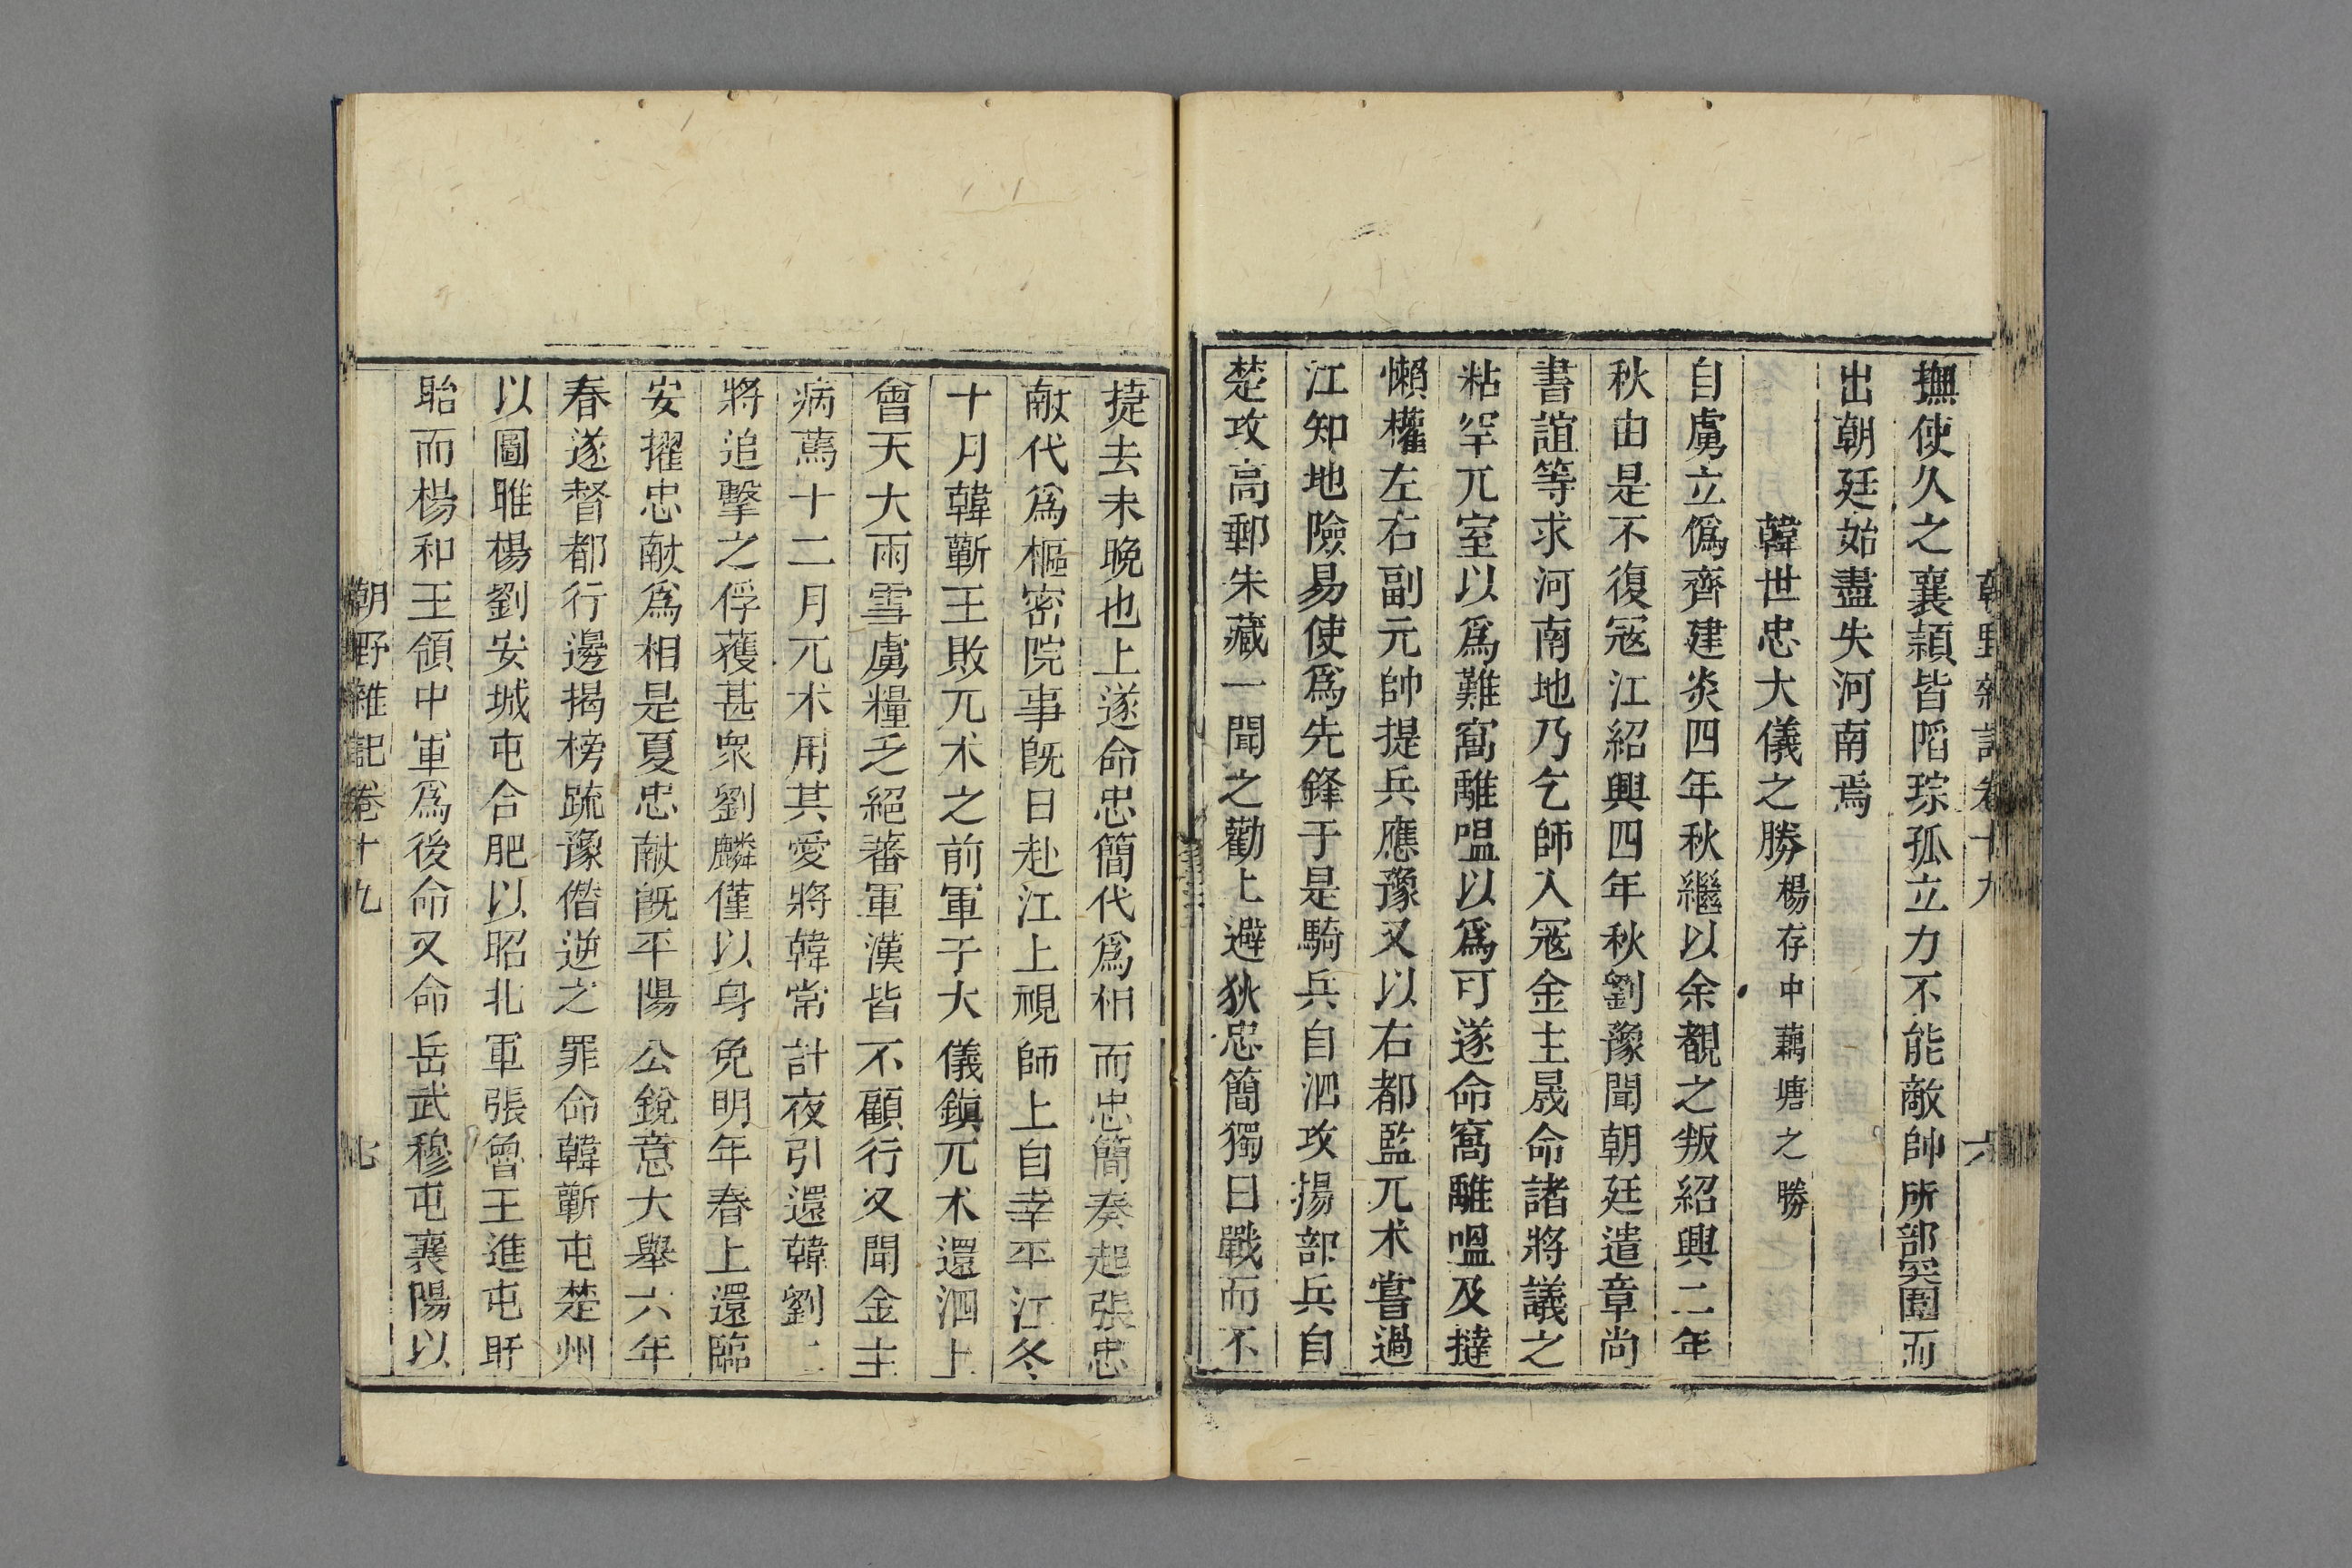 朝野雜記卷十九 六
撫使久之襄潁皆陷琮孤立力不能敵帥所部突圍而
出朝廷始盡失河南焉
韓世忠大儀之勝楊存中藕塘之勝
自虜立僞齊建炎四年秋繼以余覩之叛紹興二年
秋由是不復冦江紹興四年秋劉豫聞朝廷遣章尚
書誼等求河南地乃乞師入冦金主晟命諸將議之
粘罕兀室以爲難窩離嗢以爲可遂命窩離嗢及撻
懶權左右副元帥提兵應豫又以右都監兀术嘗過
江知地險易使爲先鋒于是騎兵自泗攻揚部兵自
楚攻高郵朱藏一聞之勸上避狄忠簡獨曰戰而不
捷去未晩也上遂命忠簡代爲相而忠簡奏起張忠
獻代爲樞密院事旣日赴江上視師上自幸平江冬
十月韓蘄王敗兀术之前軍于大儀鎭兀术還泗上
會天大雨雪虜糧乏絕蕃軍漢皆不顧行又聞金主
病篤十二月兀术用其愛將韓常計夜引還韓劉二
將追擊之俘獲甚衆劉麟僅以身免明年春上還臨
安擢忠獻爲相是夏忠獻旣平陽公銳意大舉六年
春遂督都行邊揭榜䟽豫僭逆之罪命韓蘄屯楚州
以圖睢楊劉安城屯合肥以昭北軍張魯王進屯盱
眙而楊和王領中軍爲後命又命岳武穆屯襄陽以
朝野雜記卷十九 七